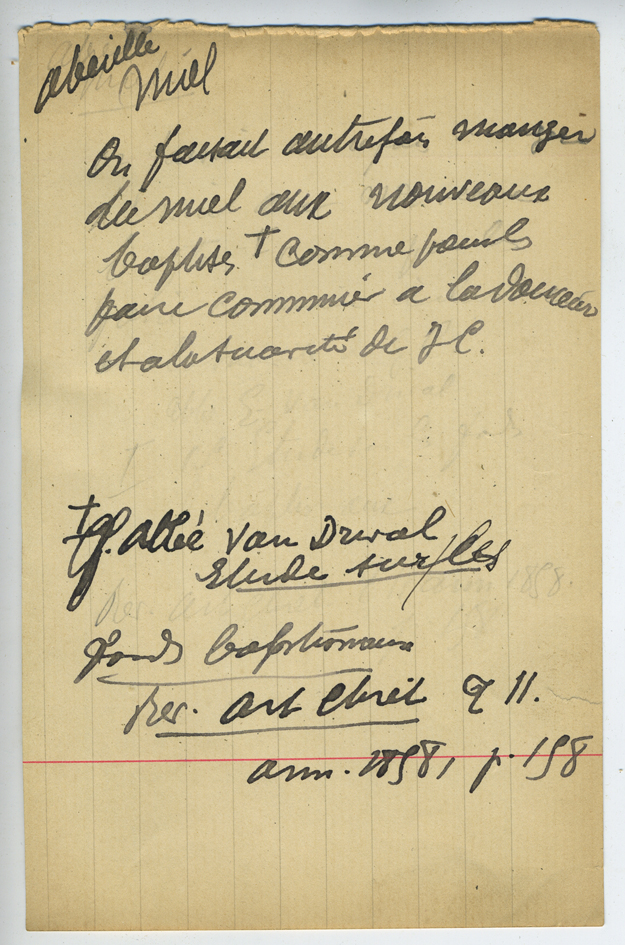 abeille
Miel
On faisait autrefois manger
du miel aux nouveaux
baptisés † comme pour les
faire communier a la douceur
et a la suavité de J C.
† Cf. abbé Van Drival
Etude sur les
fonds baptismaux
Rev. Art Chrét T II.
ann. 1858, p. 158